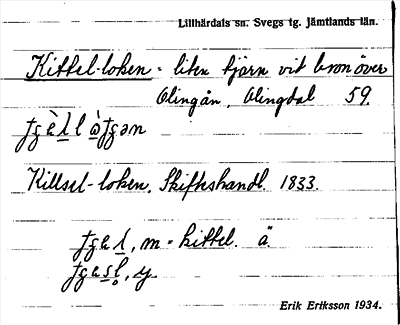 Lillhärdals sn. Svegs tg. Jämtlands län.
Kittel-loken - liten tjärn vit bron över
Olingån, Olingdal 59.
Killsel-loken, Skifteshandl. 1833.
m = kittel. ä.
Erik Eriksson 1934.